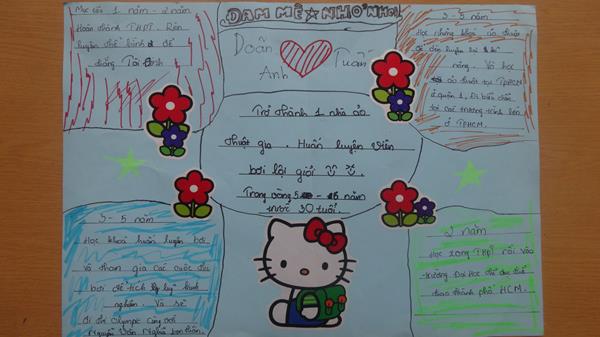 ĐAM MÊ ★ NHỎ NHOI
Doãn Tuấn
Anh
Mục tiêu 1 năm - 2 năm
Hoàn thành THPT. Rèn
luyện thể hình để
thắng Tài
3 - 5 năm
Học những khoá ảo thuật
để rèn luyện lại kĩ
năng. Và học
ảo thuật tại TPHCM
ở quận 1. Đi biểu diễn
tại các trường trình lớn
ở TPHCM.
Trở thành 1 nhà ảo
thuật gia. Huấn luyện viên
bơi lội giỏi
Trong vòng 5 năm
trước 30 tuổi.
3 - 5 năm
Học khoá huấn luyện bơi
Và tham gia các cuộc thi
bơi để tích luỹ kinh
nghiệm. Và sẽ
đi thi Olympic cùng với
Nguyễn Văn Nghĩa
2 năm
Học xong THPT rồi vào
trường Đại Học thể dục thể
thao thành phố HCM.